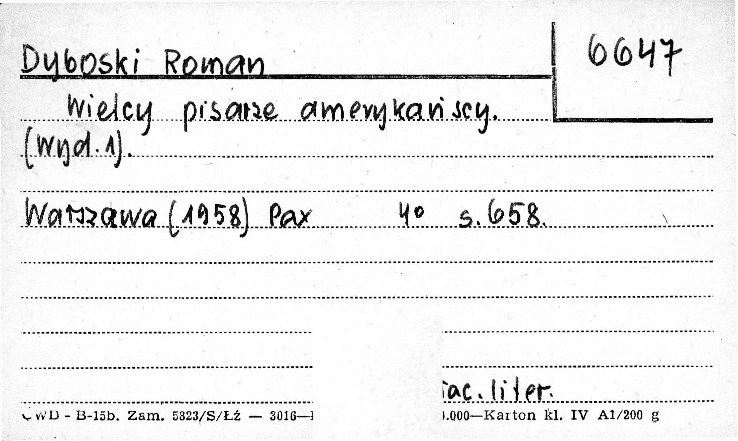 Dyboski Roman
6647
Wielcy pisarze amerykańscy.
(Wyd. 1).
Warszawa (1958) Pax 4° s. 658.
liter.
CWD - B-15b. Zam. 5823/S/Łź — 3016—
.000—Karton kl. IV A1/200 g